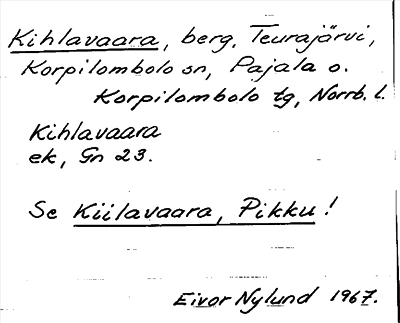 Kihlavaara, berg, Teurajärvi,
Korpilombolo sn, Pajala o.
Korpilombolo tg, Norrb. l.
Kihlavaara
ek, Gn 23.
Se Kiilavaara, Pikku!
Eivor Nylund 1967.